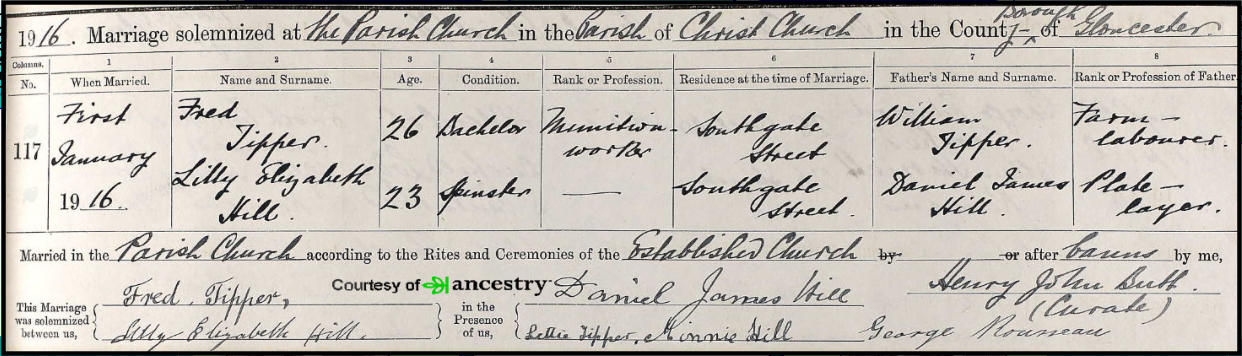 1916. Marriage solemnized at the Parish Church in the Parish of Christ Church in the County Borough of Gloucester.
Columns. 1 2 3 4 5 6 7 8
No. When Married. Name and Surname. Age. Condition. Rank or Profession. Residence at the time of Marriage. Father's Name and Surname. Rank or Profession of Father.
117 First January 1916. Fred Tipper. 26 Bachelor Munition-worker Southgate Street William Tipper. Farm-labourer.
Lilly Elizabeth Hill. 23 Spinster — Southgate Street. Daniel James Hill. Plate-layer.
Married in the Parish Church according to the Rites and Ceremonies of the Established Church by or after banns by me,
Henry John Butt.
(Curate)
This Marriage was solemnized between us, { Fred Tipper, } in the Presence of us, { Daniel James Hill
Lilly Elizabeth Hill. Lettie Tipper, Minnie Hill George Rousseau
Courtesy of ancestry